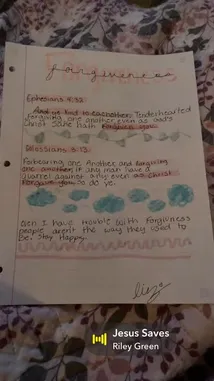 forgiveness
Ephesians 4:32
And ye kind to eachother, Tenderhearted
forgiving one another even as God's
Christ sake hath forgave you.
Colossians 3:13
Forbearing one Another and forgiving
one another if any man have a
quarrel against any even as Christ
forgave you so do ye.
I have trouble with Forgiveness
people aren't the way they used to
be. Stay Happy.
Jesus Saves
Riley Green